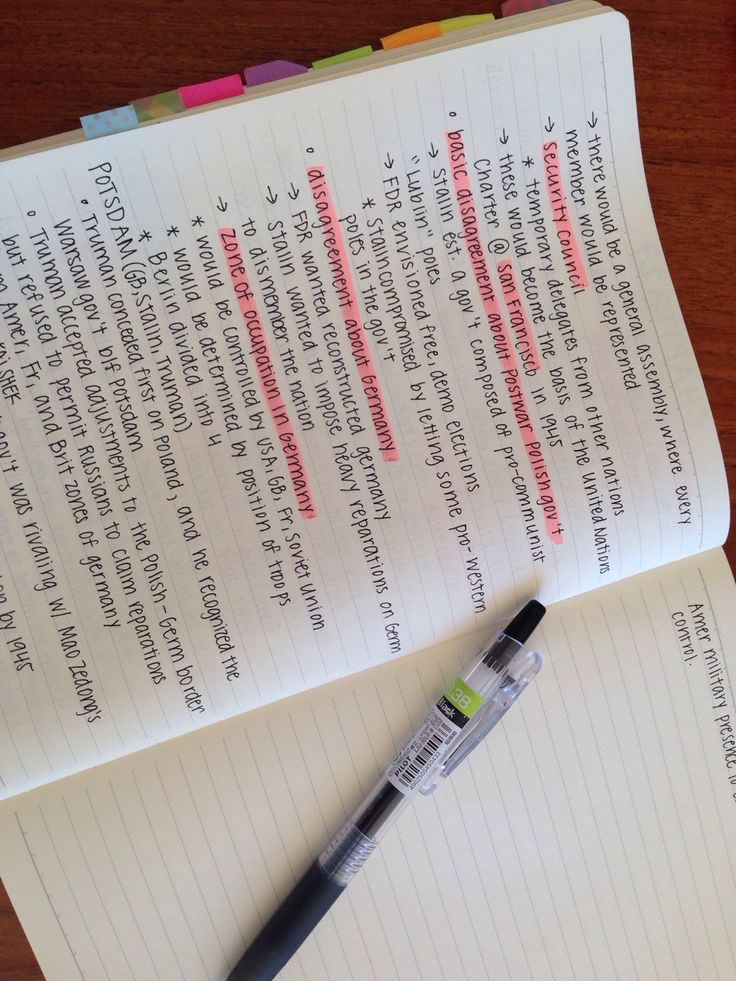 → there would be a general assembly, where every
member would be represented
→ security council
* temporary delegates from other nations
→ these would become the basis of the United Nations
Charter @ San Francisco in 1945
• basic disagreement about Postwar Polish gov't
→ Stalin est. a gov't composed of pro-communist
"Lublin" poles
→ FDR envisioned free, demo elections
* Stalin compromised by letting some pro-western
poles in the gov't
• disagreement about Germany
→ FDR wanted reconstructed germany
→ Stalin wanted to impose heavy reparations on Germ
to dismember the nation
→ zone of occupation in Germany
* would be controlled by USA, GB, Fr, Soviet Union
* would be determined by position of troops
* Berlin divided into 4
POTSDAM (GB, Stalin, Truman)
• Truman conceded first on Poland, and he recognized the
Warsaw gov't b/f Potsdam
• Truman accepted adjustments to the Polish-Germ border
but refused to permit Russians to claim reparations
Amer, Fr, and Brit zones of germany
SHEK
gov't was rivaling w/ Mao Zedong's
by 1945
Amer military presence
control.
0.38
Black
PILOT
4902505400453